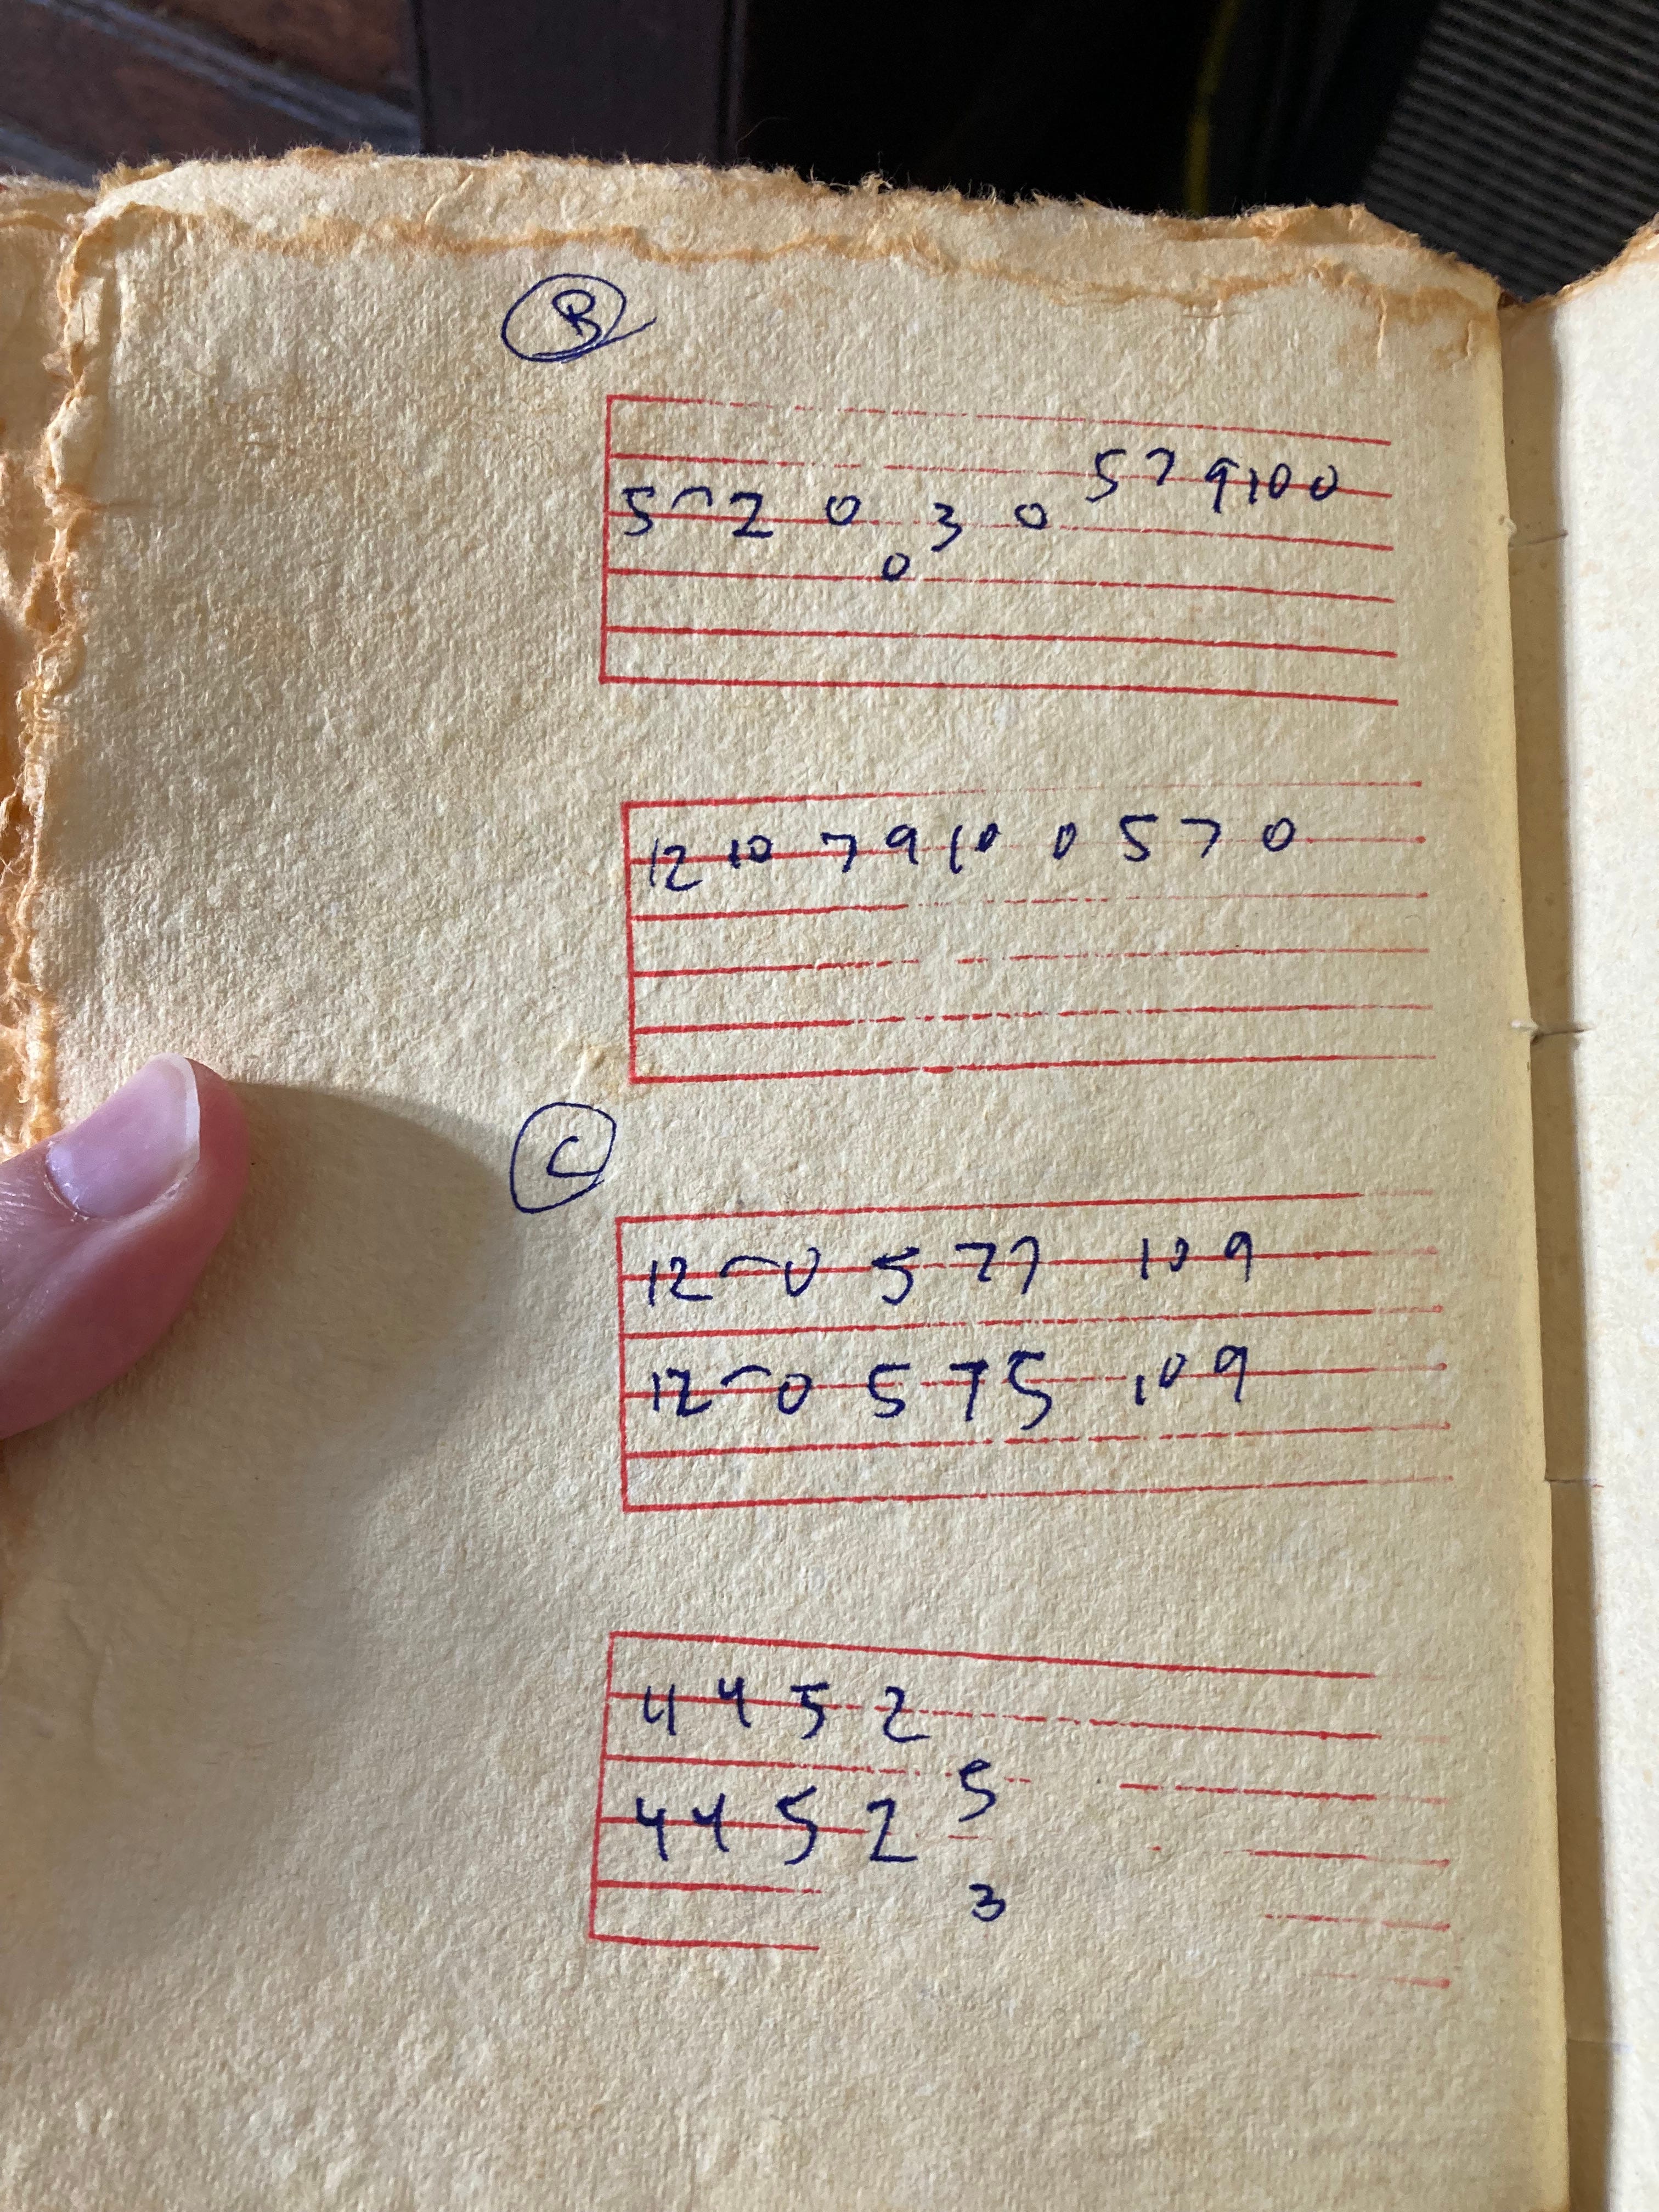 B
5 7 9 10 0
5⌒2 0 3 0
0
12 10 7 9 10 0 5 7 0
C
12⌒0 5 7 7 10 9
12⌒0 5 7 5 10 9
4 4 5 2
5
4 4 5 2
3